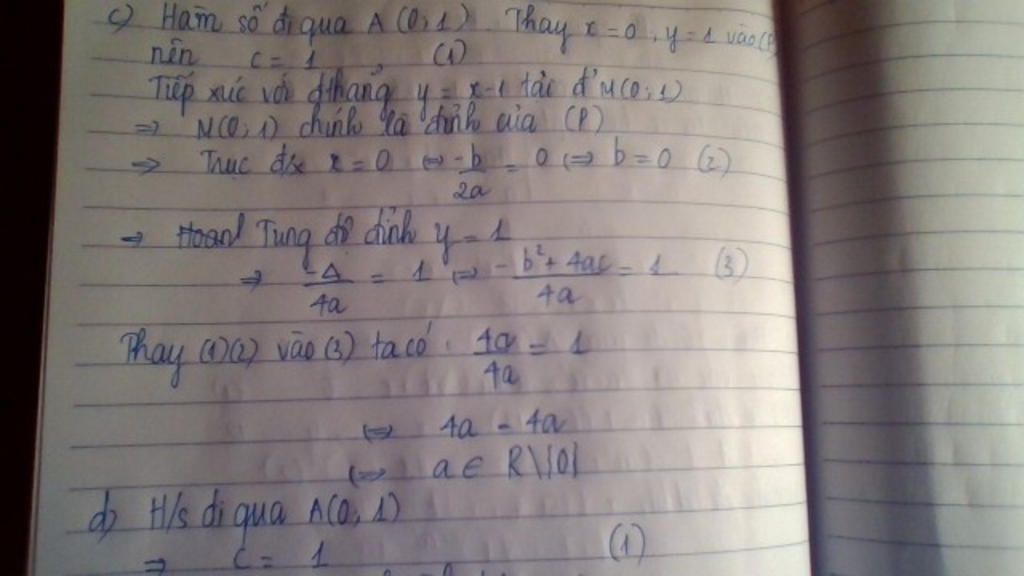 c) Hàm số đi qua A (0;1) Thay x = 0, y = 1 vào (P)
nên c = 1 (1)
Tiếp xúc với đthẳng y = x-1 tại đ' M(0;1)
=> M(0;1) chính là đỉnh của (P)
=> Trục đ/x x = 0 <=> -b/2a = 0 <=> b = 0 (2)
=> Tung độ đỉnh y = 1
=> -Δ/4a = 1 <=> -b²+4ac/4a = 1 (3)
Thay (1)(2) vào (3) ta có: 4a/4a = 1
<=> 4a = 4a
<=> a ∈ R\{0}
d) H/s đi qua A(0;1)
=> c = 1 (1)